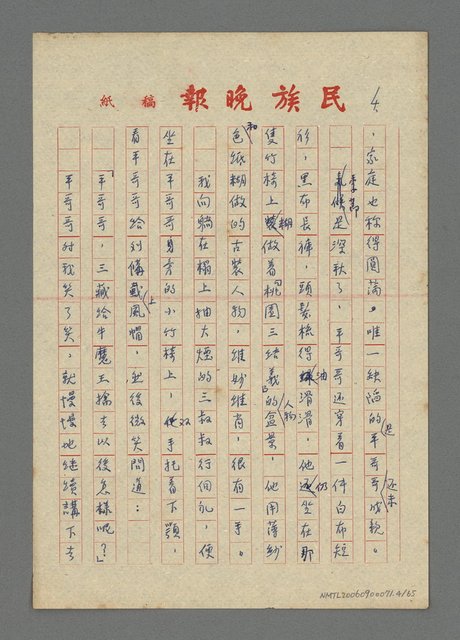 民族晚報 稿紙
4.
，家庭也称得圓滿。唯一缺陷的是平哥哥还未成親。
季節是深秋了，平哥哥还穿着一件白布短
衫，黑布長褲，頭髮梳得油滑滑，他仍坐在那
隻竹椅上糊做着「桃園三結義」的人物盒景，他用薄紗
和色紙糊做的古裝人物，維妙維肖，很有一手。
我向躺在榻上抽大煙的三叔叔行個礼，便
坐在平哥哥身旁的小竹椅上，双手托着下顎，
看平哥哥給刘備戴上風帽，然後微笑問道：
「平哥哥，三藏給牛魔王擒去以後怎樣呢？」
平哥哥对我笑了笑，就慢慢地継續講下去
NMTL20060900071.4/65